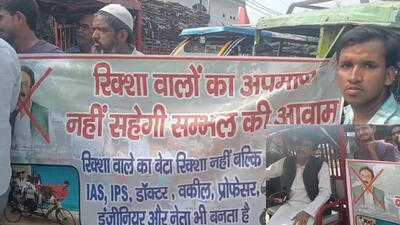 रिक्शा वालों का अपमान
नहीं सहेगी सम्भल की आवाम
रिक्शे वाले का बेटा रिक्शा नहीं बल्कि
IAS, IPS, डॉक्टर, वकील, प्रोफेसर,
इंजीनियर और नेता भी बनता है